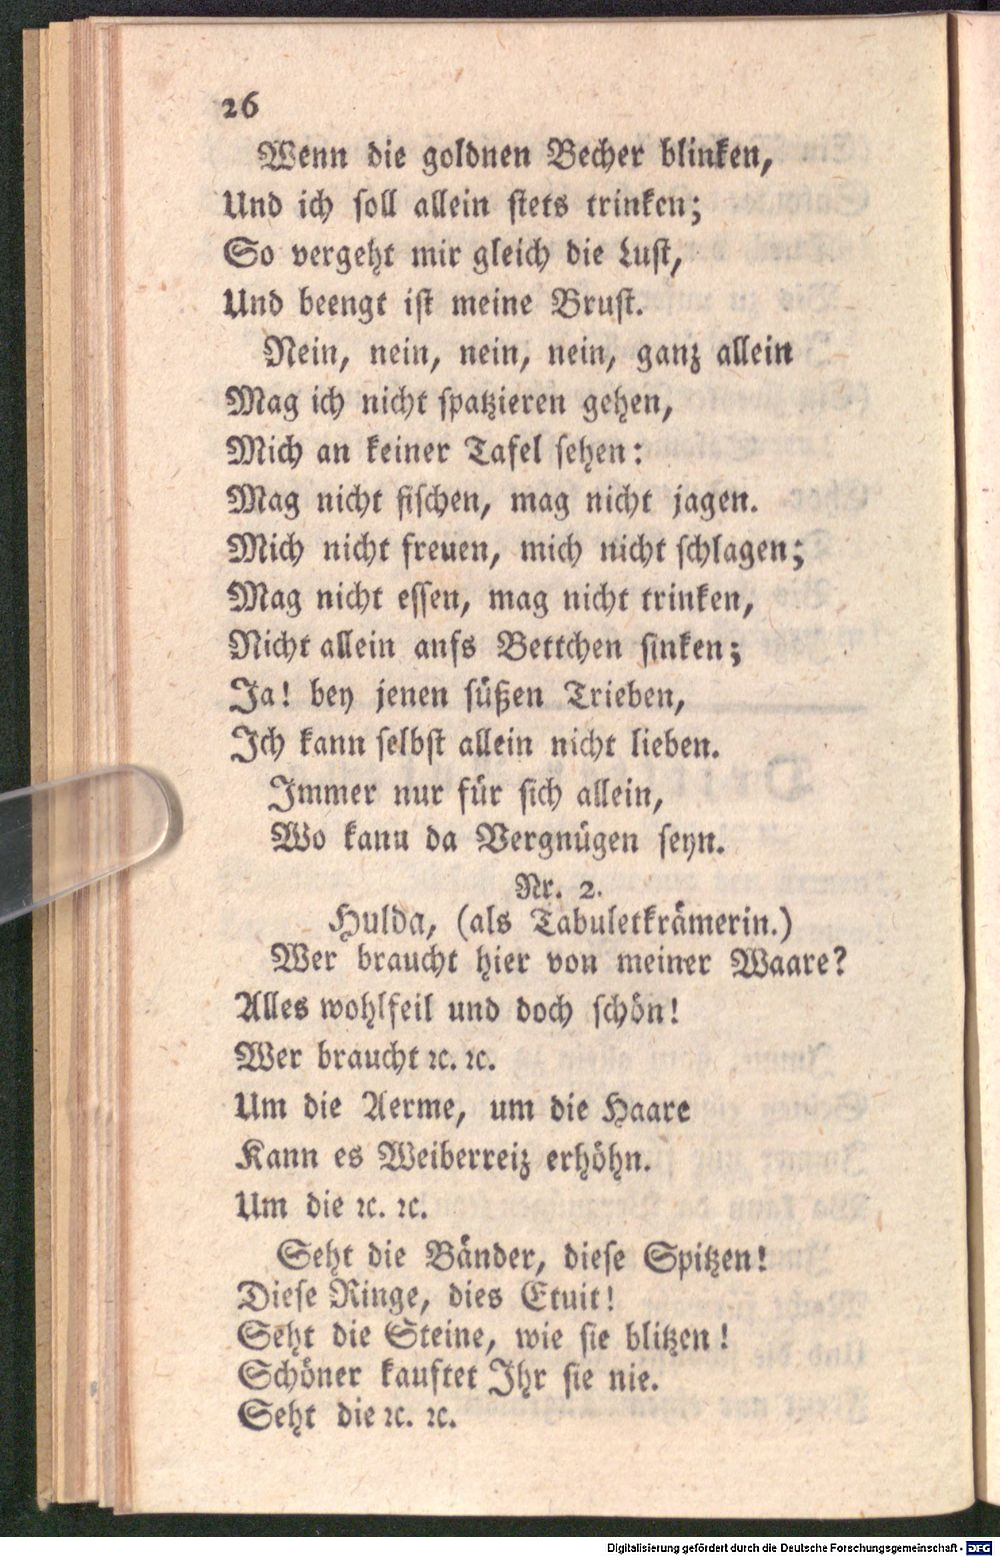 26
Wenn die goldnen Becher blinken,
Und ich soll allein stets trinken;
So vergeht mir gleich die Lust,
Und beengt ist meine Brust.
Nein, nein, nein, nein, ganz allein
Mag ich nicht spatzieren gehen,
Mich an keiner Tafel sehen:
Mag nicht fischen, mag nicht jagen.
Mich nicht freuen, mich nicht schlagen;
Mag nicht essen, mag nicht trinken,
Nicht allein anfs Bettchen sinken;
Ja! bey jenen süßen Trieben,
Ich kann selbst allein nicht lieben.
Immer nur für sich allein,
Wo kann da Vergnügen seyn.
Nr. 2.
Hulda, (als Tabuletkrämerin.)
Wer braucht hier von meiner Waare?
Alles wohlfeil und doch schön!
Wer braucht ꝛc. ꝛc.
Um die Aerme, um die Haare
Kann es Weiberreiz erhöhn.
Um die ꝛc. ꝛc.
Seht die Bänder, diese Spitzen!
Diese Ringe, dies Etuit!
Seht die Steine, wie sie blitzen!
Schöner kauftet Ihr sie nie.
Seht die ꝛc. ꝛc.
Digitalisierung gefördert durch die Deutsche Forschungsgemeinschaft - DFG